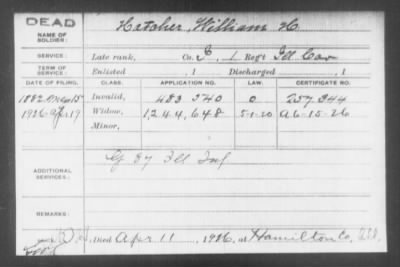 DEAD
NAME OF SOLDIER: Hatcher, William H.
SERVICE: Late rank, Co. , 1 Reg't Ill Cav
TERM OF SERVICE: Enlisted , 1 Discharged , 1
DATE OF FILING. CLASS. APPLICATION NO. LAW. CERTIFICATE NO.
1882 15 Invalid, 483 540 0 257 344
1926 Apr 19 Widow, 1,244,648 5-1-20 A6-15-26
Minor,
G 87 Ill Inf
ADDITIONAL SERVICES:
REMARKS:
Died Apr 11, 1926, at Hamilton Co, Ill.